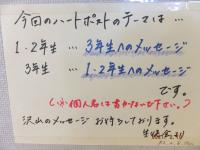 今回のハートポストのテーマは…
1・2年生 … 3年生へのメッセージ
3年生 … 1・2年生へのメッセージ
です。
(※個人名は書かないで下さい。)
沢山のメッセージお待ちしております。